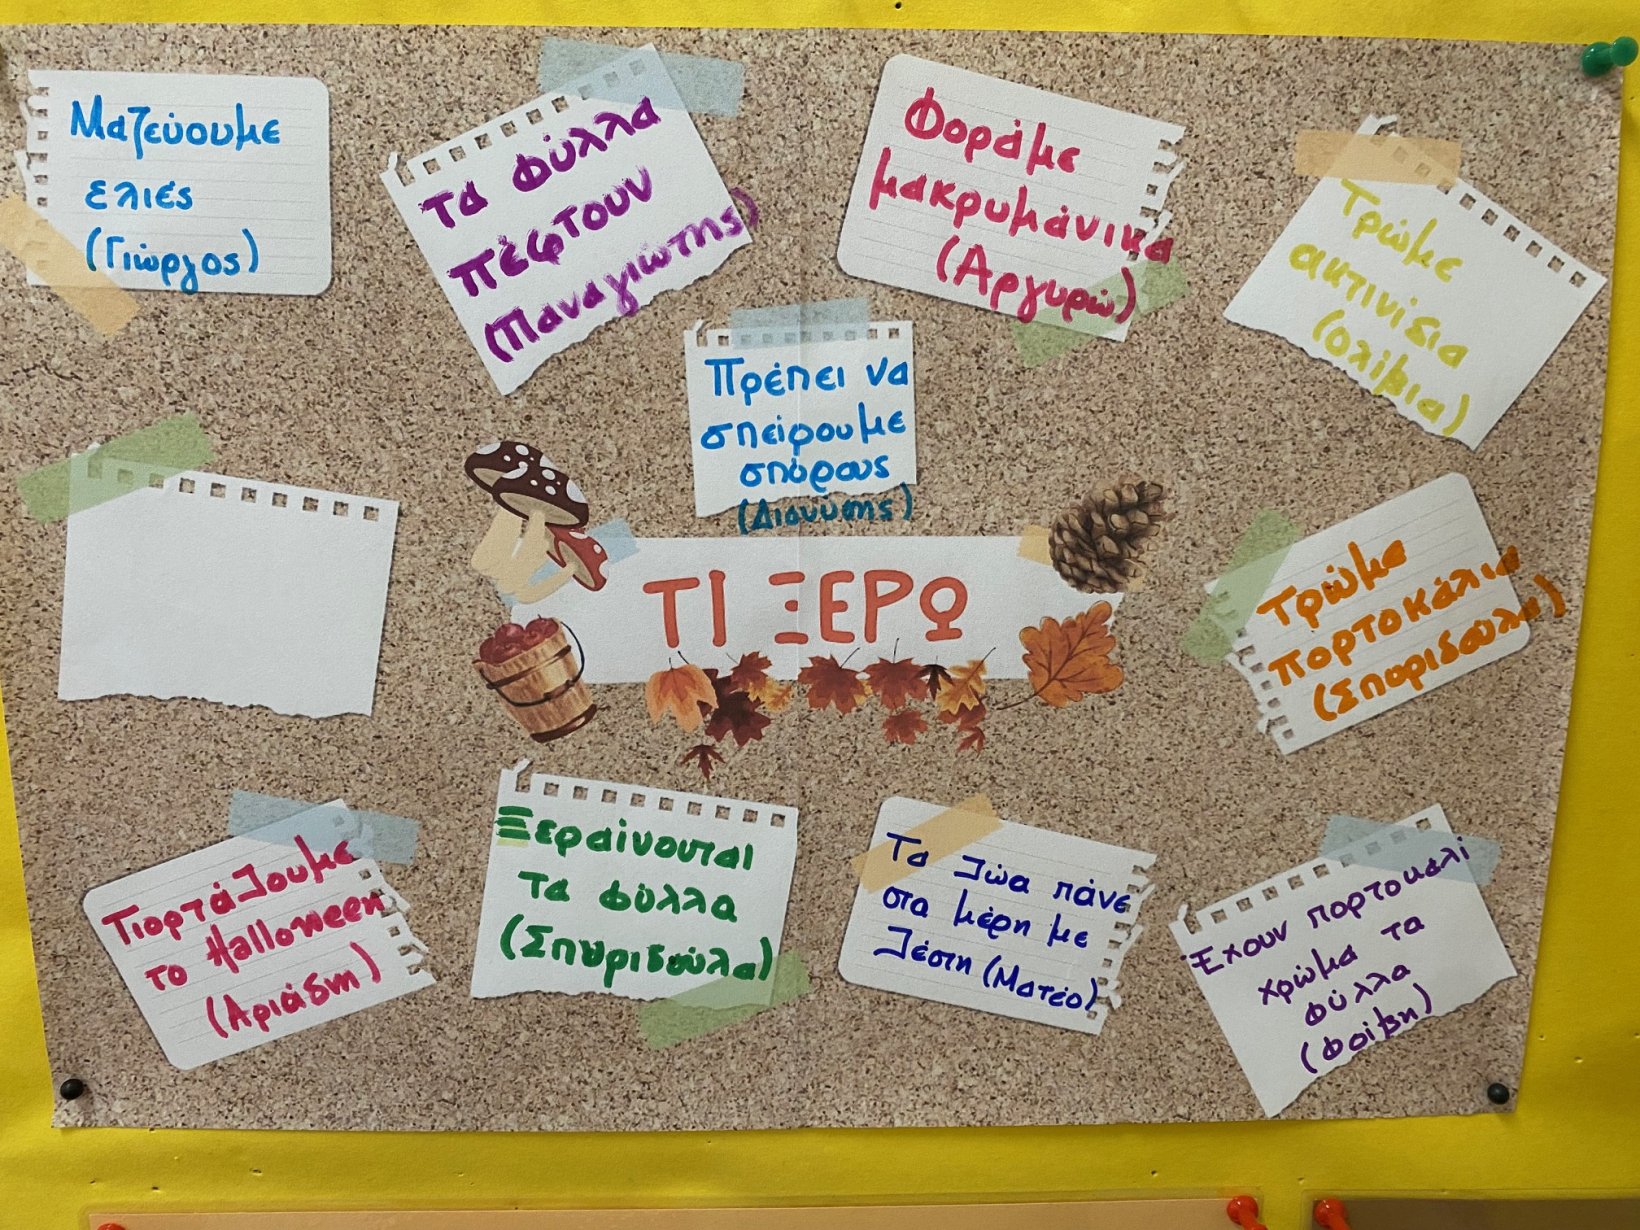 Μαζεύουμε
ελιές
(Γιώργος)
τα φύλλα
πέφτουν
(Παναγιώτης)
Φοράμε
μακρυμάνικα
(Αργυρώ)
Τρώμε
ακτινίδια
(Ολίβια)
Πρέπει να
σπείρουμε
σπόρους
(Διονύσης)
ΤΙ ΞΕΡΩ
Τρώμε
πορτοκάλια
(Σπυριδούλα)
Γιορτάζουμε
το Halloween
(Αριάδνη)
Ξεραίνονται
τα φύλλα
(Σπυριδούλα)
Τα ζώα πάνε
στα μέρη με
ζέστη (Ματέο)
Έχουν πορτοκαλί
χρώμα τα
φύλλα
(Φοίβη)